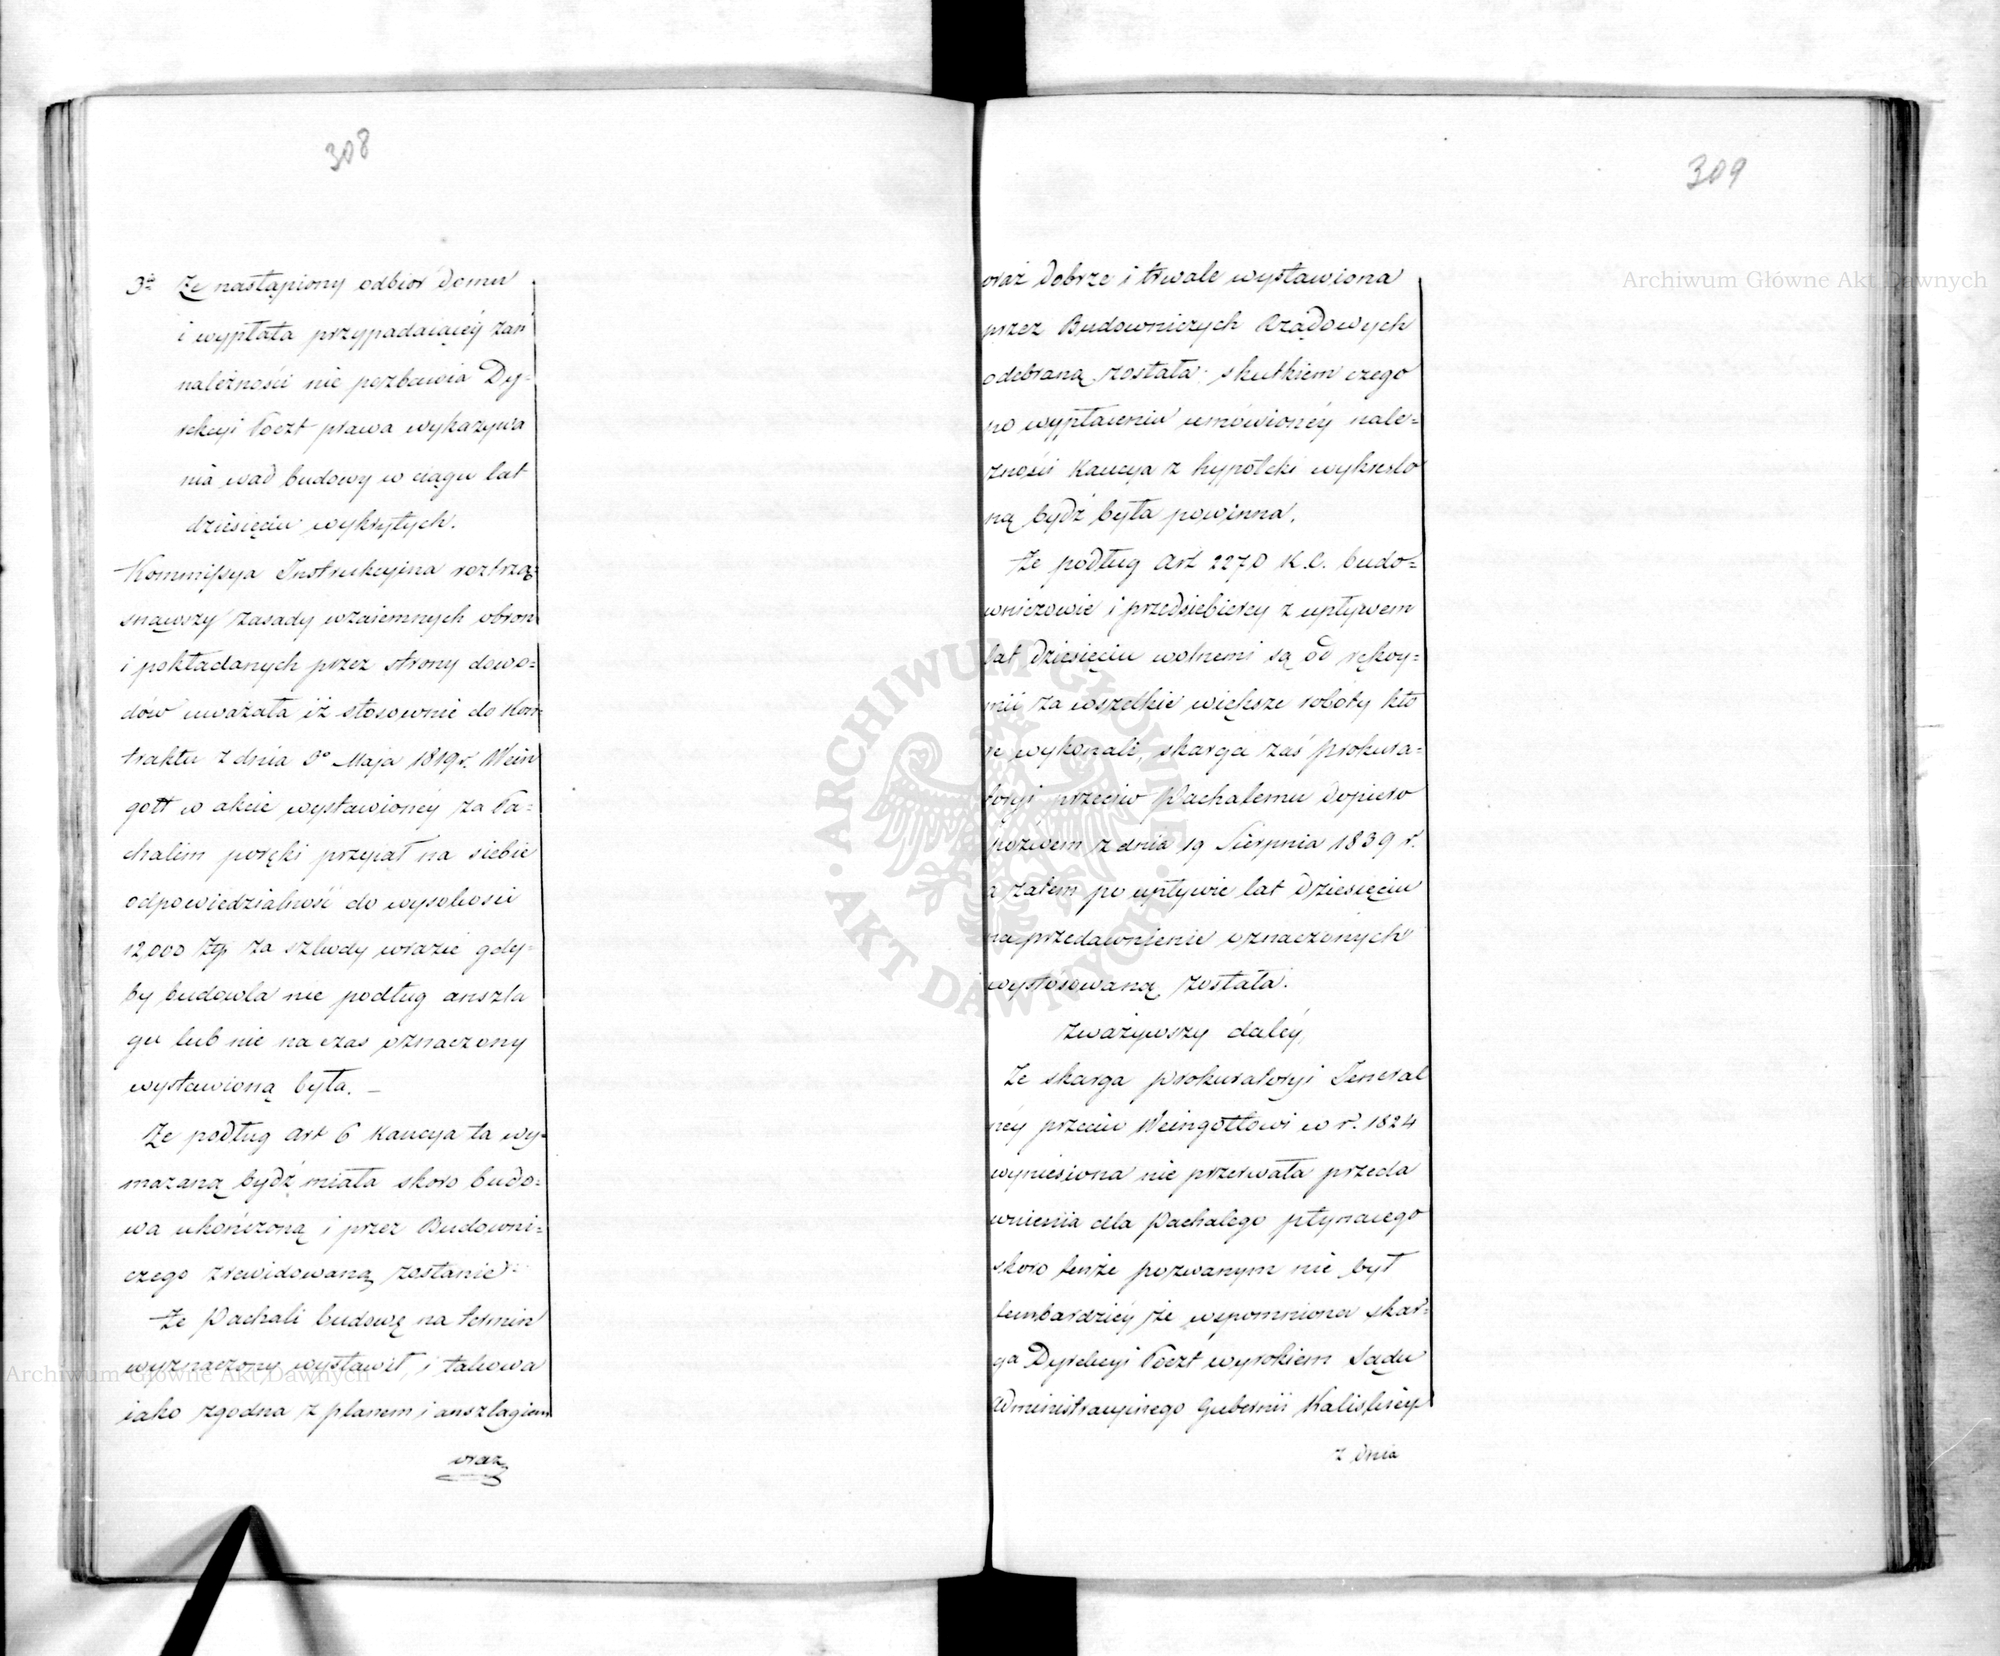 308
3º Że nastąpiony odbiór Domu
i wypłata przypadaiącéy zań
należności nie pozbawia Dy-
rekcyi Poczt prawa wykazywa
nia wad budowy w ciągu lat
dziesięciu wykrytych.
Kommissya Instrukcyina roztrzą-
snąwszy zasady wzaiemnych obron
i pokładanych przez strony dowo-
dów uważała iż stosownie do Kon-
traktu z dnia Maja 1819 r. Wein
gott w akcie wystawionéy za Pa-
chalim poręki przyiął na siebie
odpowiedzialność do wysokości
12,000 Złp za szkody wrazie gdy-
by budowla nie podług anszla
gu lub nie na czas oznaczony
wystawioną była. —
Że podług Art 6 Kaucya ta wy-
mazaną bydź miała skoro budo-
wa ukończoną i przez Budowni-
czego zrewidowaną zostanie
Że Pachali budowę na termin
wyznaczony wystawił, i takowa
iako zgodna z planem i anszlagiem
oraz
309
oraz dobrze i trwale wystawiona
przez Budowniczych Rządowych
odebraną została skutkiem czego
po wypłaceniu umówionéy nale-
żności Kaucya z hypoteki wykreślo
ną bydź była powinna.
Że podług Art 2270 K.C. budo-
wniczowie i przedsiebiercy z upływem
lat dziesięciu wolnemi są od rękoy-
mii za wszelkie większe roboty któ
re wykonali, skarga zaś Prokura-
toryi przeciw Pachalemu dopiero
pozwem z dnia 19 Sierpnia 1839 r.
a zatem po upływie lat dziesięciu
na przedawnienie oznaczonych
wystosowaną została.
Zważywszy daléy,
Że skarga Prokuratoryi General
néy przeciw Weingottowi w r. 1824
wyniesiona nie przerwała przeda
wnienia dla Pachalego płynącego
skoro tenże pozwanym nie był
tembardziéy że wspomniona skar-
ga Dyrekcyi Poczt wyrokiem Sądu
Administracyinego Gubernii Kaliskiéy
z dnia
Archiwum Główne Akt Dawnych
Archiwum Główne Akt Dawnych
ARCHIWUM GŁÓWNE AKT DAWNYCH